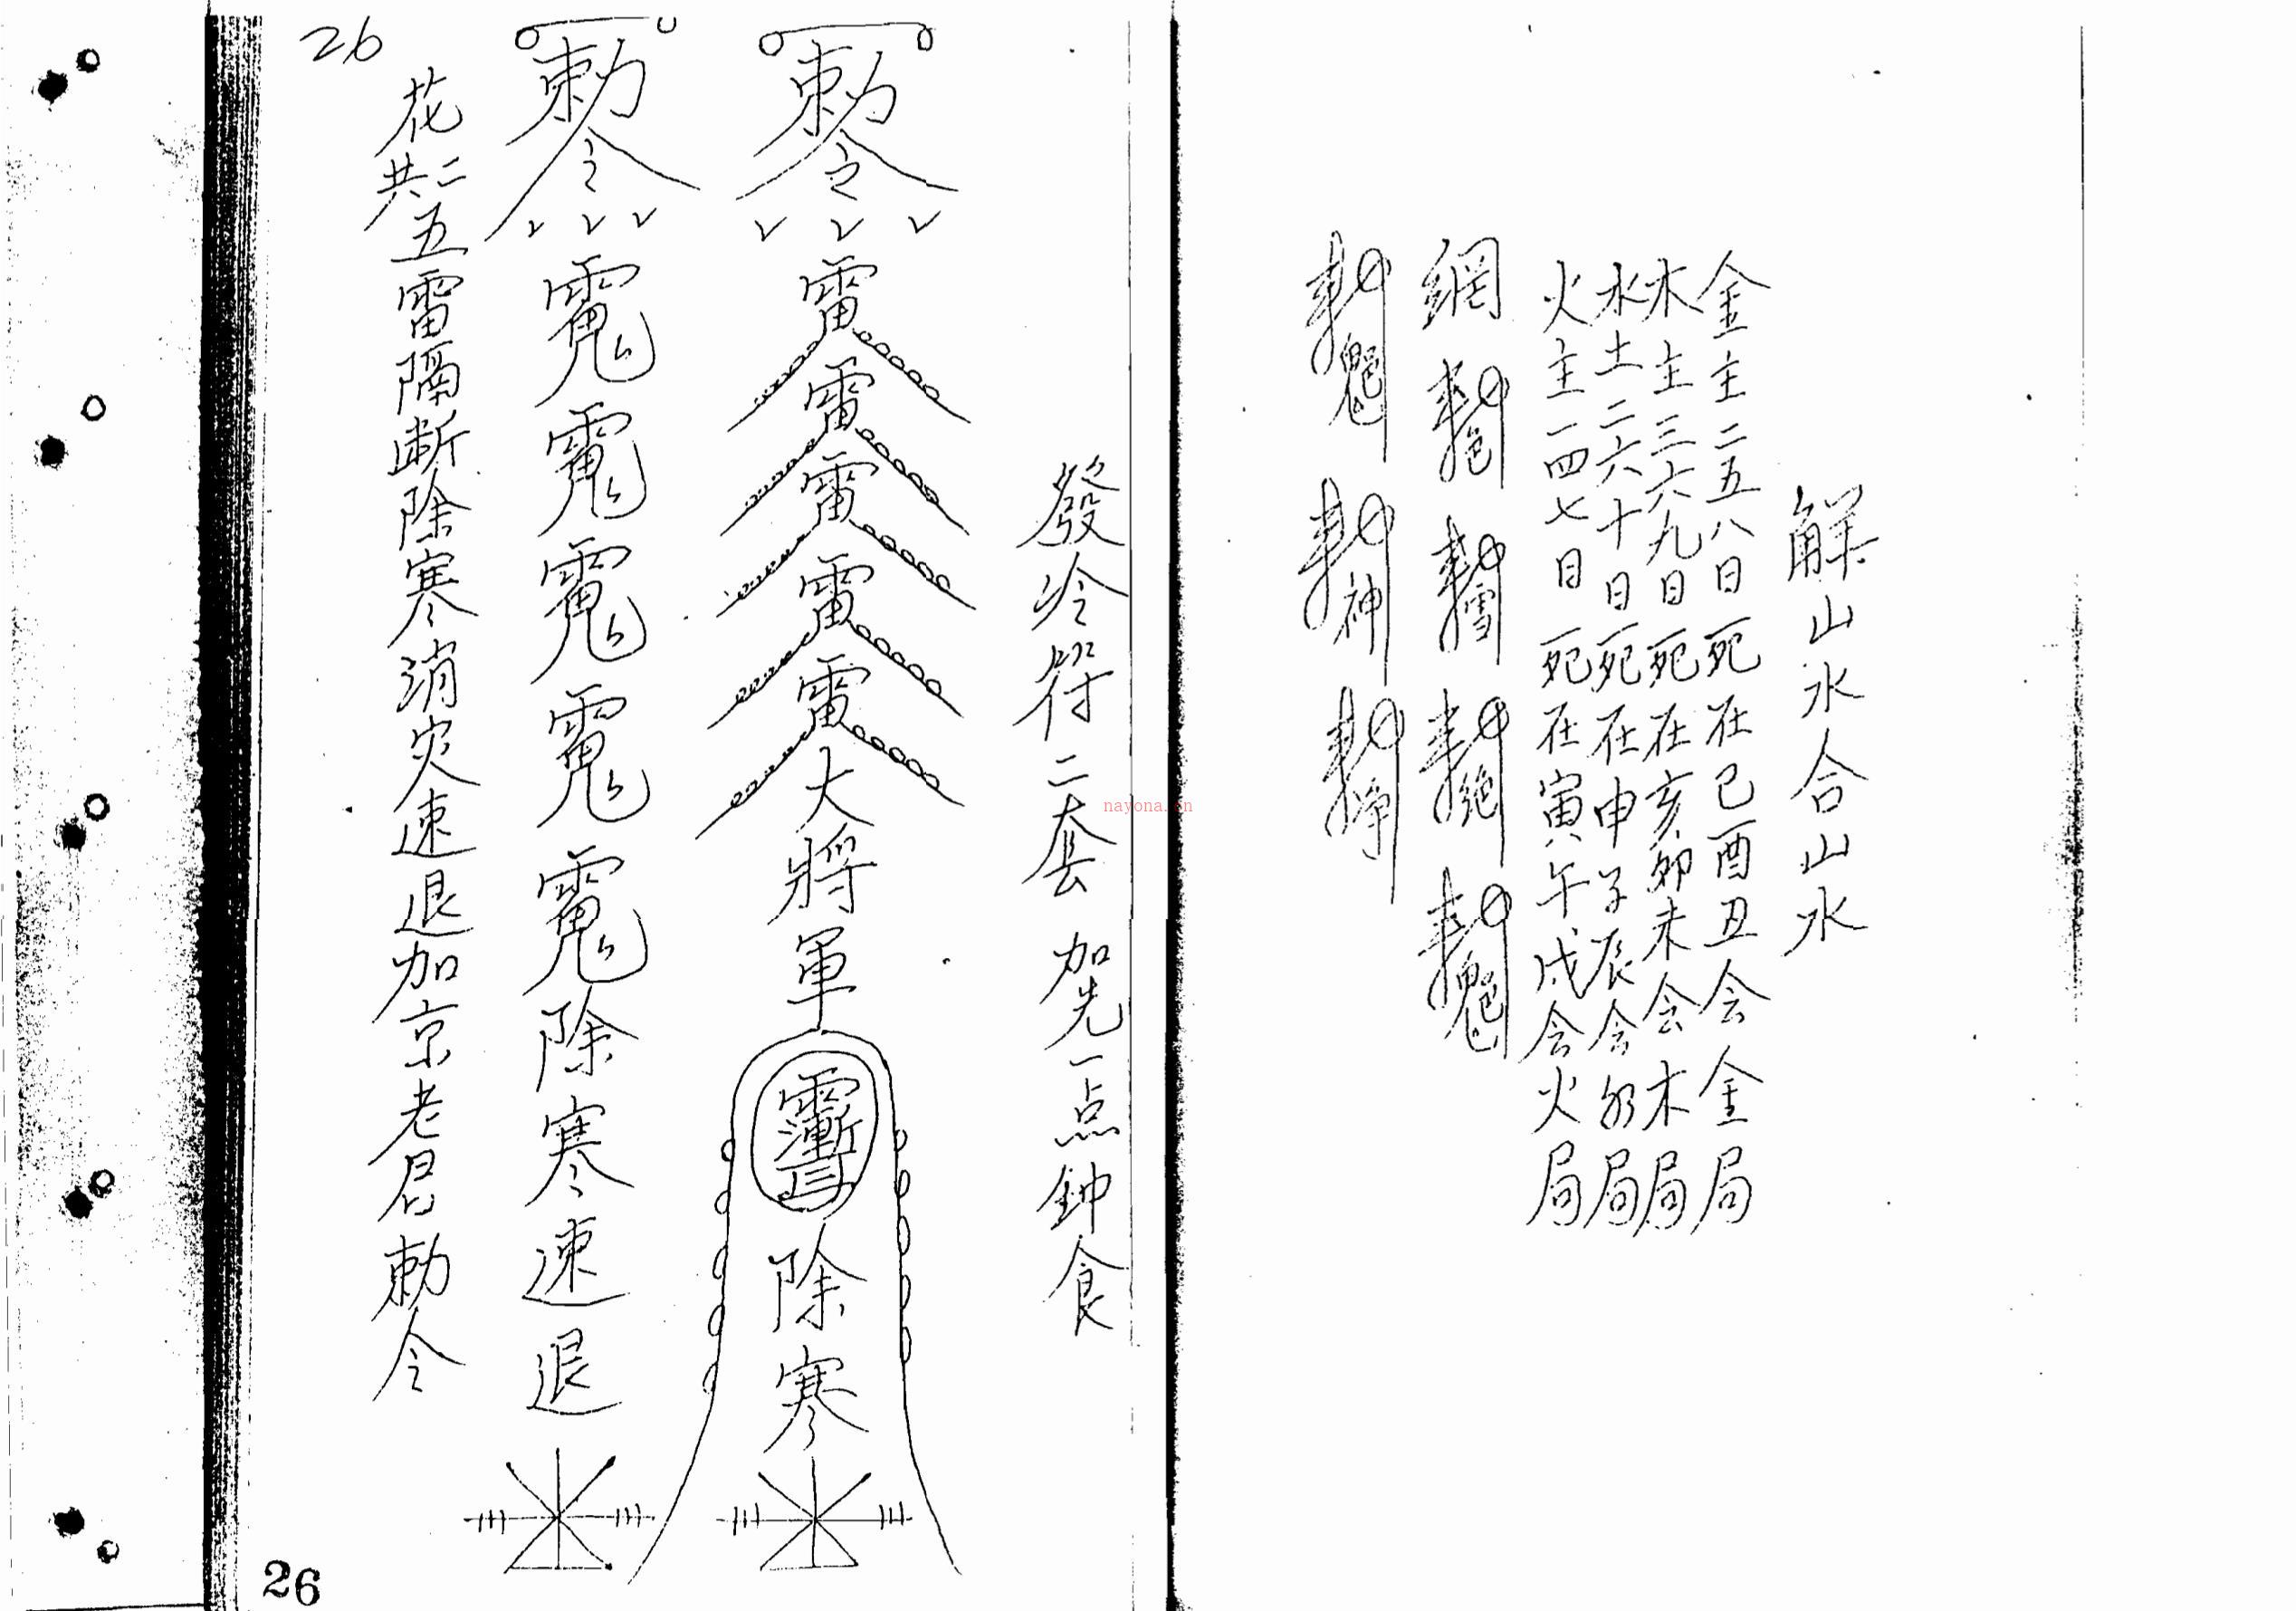 解山水合山水
金主二五八日死在巳酉丑会金局
木主三六九日死在亥卯未会木局
水土二六十日死在申子辰会水局
火主一四七日死在寅午戌会火局
網
發冷符二套 加先一点鈡食
敕令
雷雷雷雷雷大将軍
除寒
敕令
除寒速退
花共二五雷隔断除寒消灾速退加京老君勅令
26
26
nayona.cn